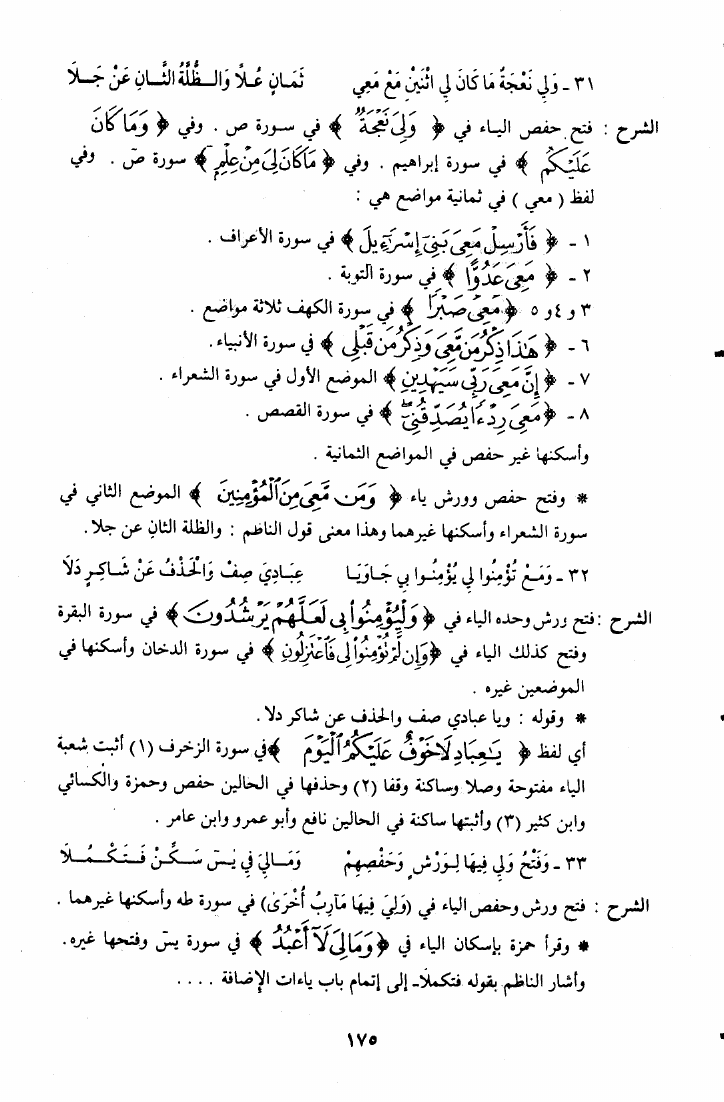 ٣١ - وَلِي نَعْجَةٌ مَا كَانَ لِي اثْنَيْنِ مَعْ مَعِي ثَمَـانٍ عُـلًا وَالـظُّلَّةُ الثَّـانِ عَنْ جَـلَا
الشرح : فتح حفص اليـاء في ﴿ وَلِىَ نَعْجَةٌ ﴾ في سـورة ص . وفي ﴿ وَمَا كَانَ
عَلَيْكُم ﴾ في سورة إبراهيم . وفي ﴿ مَا كَانَ لِىَ مِنْ عِلْمٍ ﴾ سورة صۤ . وفي
لفظ ( معي ) في ثمانية مواضع هي :
١ - ﴿ فَأَرْسِلْ مَعِىَ بَنِىٓ إِسْرَٰٓءِيلَ ﴾ في سورة الأعراف .
٢ - ﴿ مَعِىَ عَدُوًّا ﴾ في سورة التوبة .
٣ و ٤ و ٥ ﴿ مَعِىَ صَبْرًا ﴾ في سورة الكهف ثلاثة مواضع .
٦ - ﴿ هَٰذَا ذِكْرُ مَن مَّعِىَ وَذِكْرُ مَن قَبْلِى ﴾ في سورة الأنبياء.
٧ - ﴿ إِنَّ مَعِىَ رَبِّى سَيَهْدِينِ ﴾ الموضع الأول في سورة الشعراء .
٨ - ﴿ مَعِىَ رِدْءًا يُصَدِّقُنِىٓ ﴾ في سورة القصص .
وأسكنها غير حفص في المواضع الثمانية .
* وفتح حفص وورش ياء ﴿ وَمَن مَّعِىَ مِنَ ٱلْمُؤْمِنِينَ ﴾ الموضع الثاني في
سورة الشعراء وأسكنها غيرهما وهذا معنى قول الناظم : والظلة الثان عن جلا.
٣٢ - وَمَـعْ تُؤْمِنُوا لِي يُؤْمِنُـوا بِي جَـاوَيَـا عِبَـادِيَ صِفْ وَالْحَذْفُ عَنْ شَـاكِـرٍ دَلَا
الشرح : فتح ورش وحده الياء في ﴿ وَلْيُؤْمِنُوا۟ بِى لَعَلَّهُمْ يَرْشُدُونَ ﴾ في سورة البقرة
وفتح كذلك الياء في ﴿ وَإِن لَّمْ تُؤْمِنُوا۟ لِى فَٱعْتَزِلُونِ ﴾ في سورة الدخان وأسكنها في
الموضعين غيره .
* وقوله : ويا عبادي صف والحذف عن شاكر دلا.
أي لفظ ﴿ يَٰعِبَادِ لَا خَوْفٌ عَلَيْكُمُ ٱلْيَوْمَ ﴾ في سورة الزخرف (١) أثبت شعبة
الياء مفتوحة وصلا وساكنة وقفا (٢) وحذفها في الحالين حفص وحمزة والكسائي
وابن كثير (٣) وأثبتها ساكنة في الحالين نافع وأبو عمرو وابن عامر .
٣٣ - وَفَتْحُ وَلِي فِيهَا لِـوَرْشٍ وَحَفْصِهِمْ وَمَـالِيَ فِي يٰسۤ سَـكِّـنْ فَـتَـكْـمُـلَا
الشرح : فتح ورش وحفص الياء في (وَلِيَ فِيهَا مَآرِبُ أُخْرَىٰ) في سورة طه وأسكنها غيرهما .
* وقرأ حمزة بإسكان الياء في ﴿ وَمَا لِىَ لَآ أَعْبُدُ ﴾ في سورة يسۤ وفتحها غيره.
وأشار الناظم بقوله فتكملا- إلى إتمام باب ياءات الإضافة . . . .
١٧٥